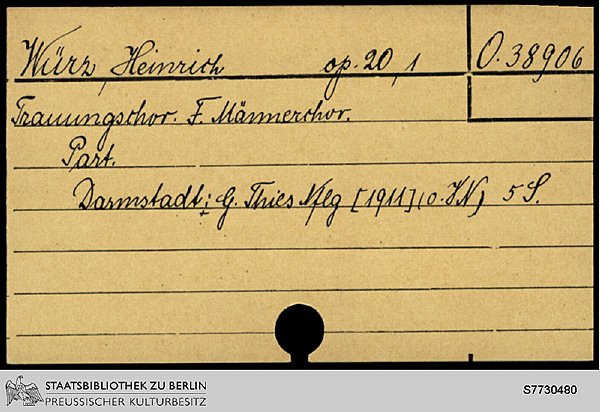 Würz, Heinrich op. 20,1 O. 38906
Trauungschor. F. Männerchor.
Part.
Darmstadt: G. Thies Nflg [1911] (o. VN) 5 S.
STAATSBIBLIOTHEK ZU BERLIN
PREUSSISCHER KULTURBESITZ
S7730480